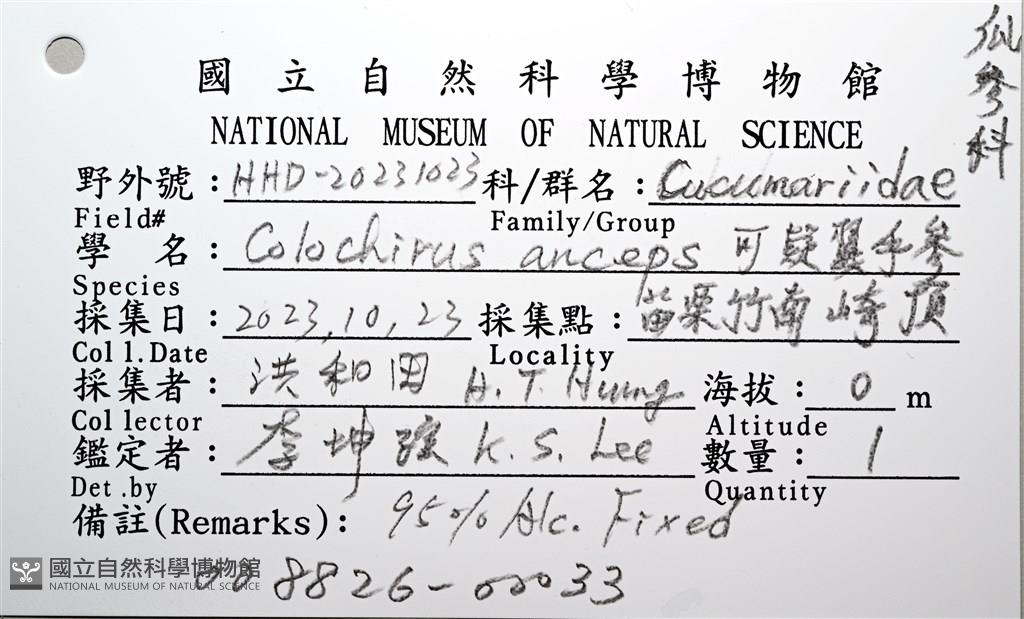 仙參科
國立自然科學博物館
NATIONAL MUSEUM OF NATURAL SCIENCE
野外號：HHD-20231023 科/群名：Cucumariidae
Field# Family/Group
學 名：Colochirus anceps 可疑翼手參
Species
採集日：2023,10,23 採集點：苗栗竹南崎頂
Coll.Date Locality
採集者：洪和田 H. T. Hung 海拔：0 m
Collector Altitude
鑑定者：李坤瑄 K. S. Lee 數量：1
Det.by Quantity
備註(Remarks)：95% Alc. Fixed
8826-00033
國立自然科學博物館
NATIONAL MUSEUM OF NATURAL SCIENCE